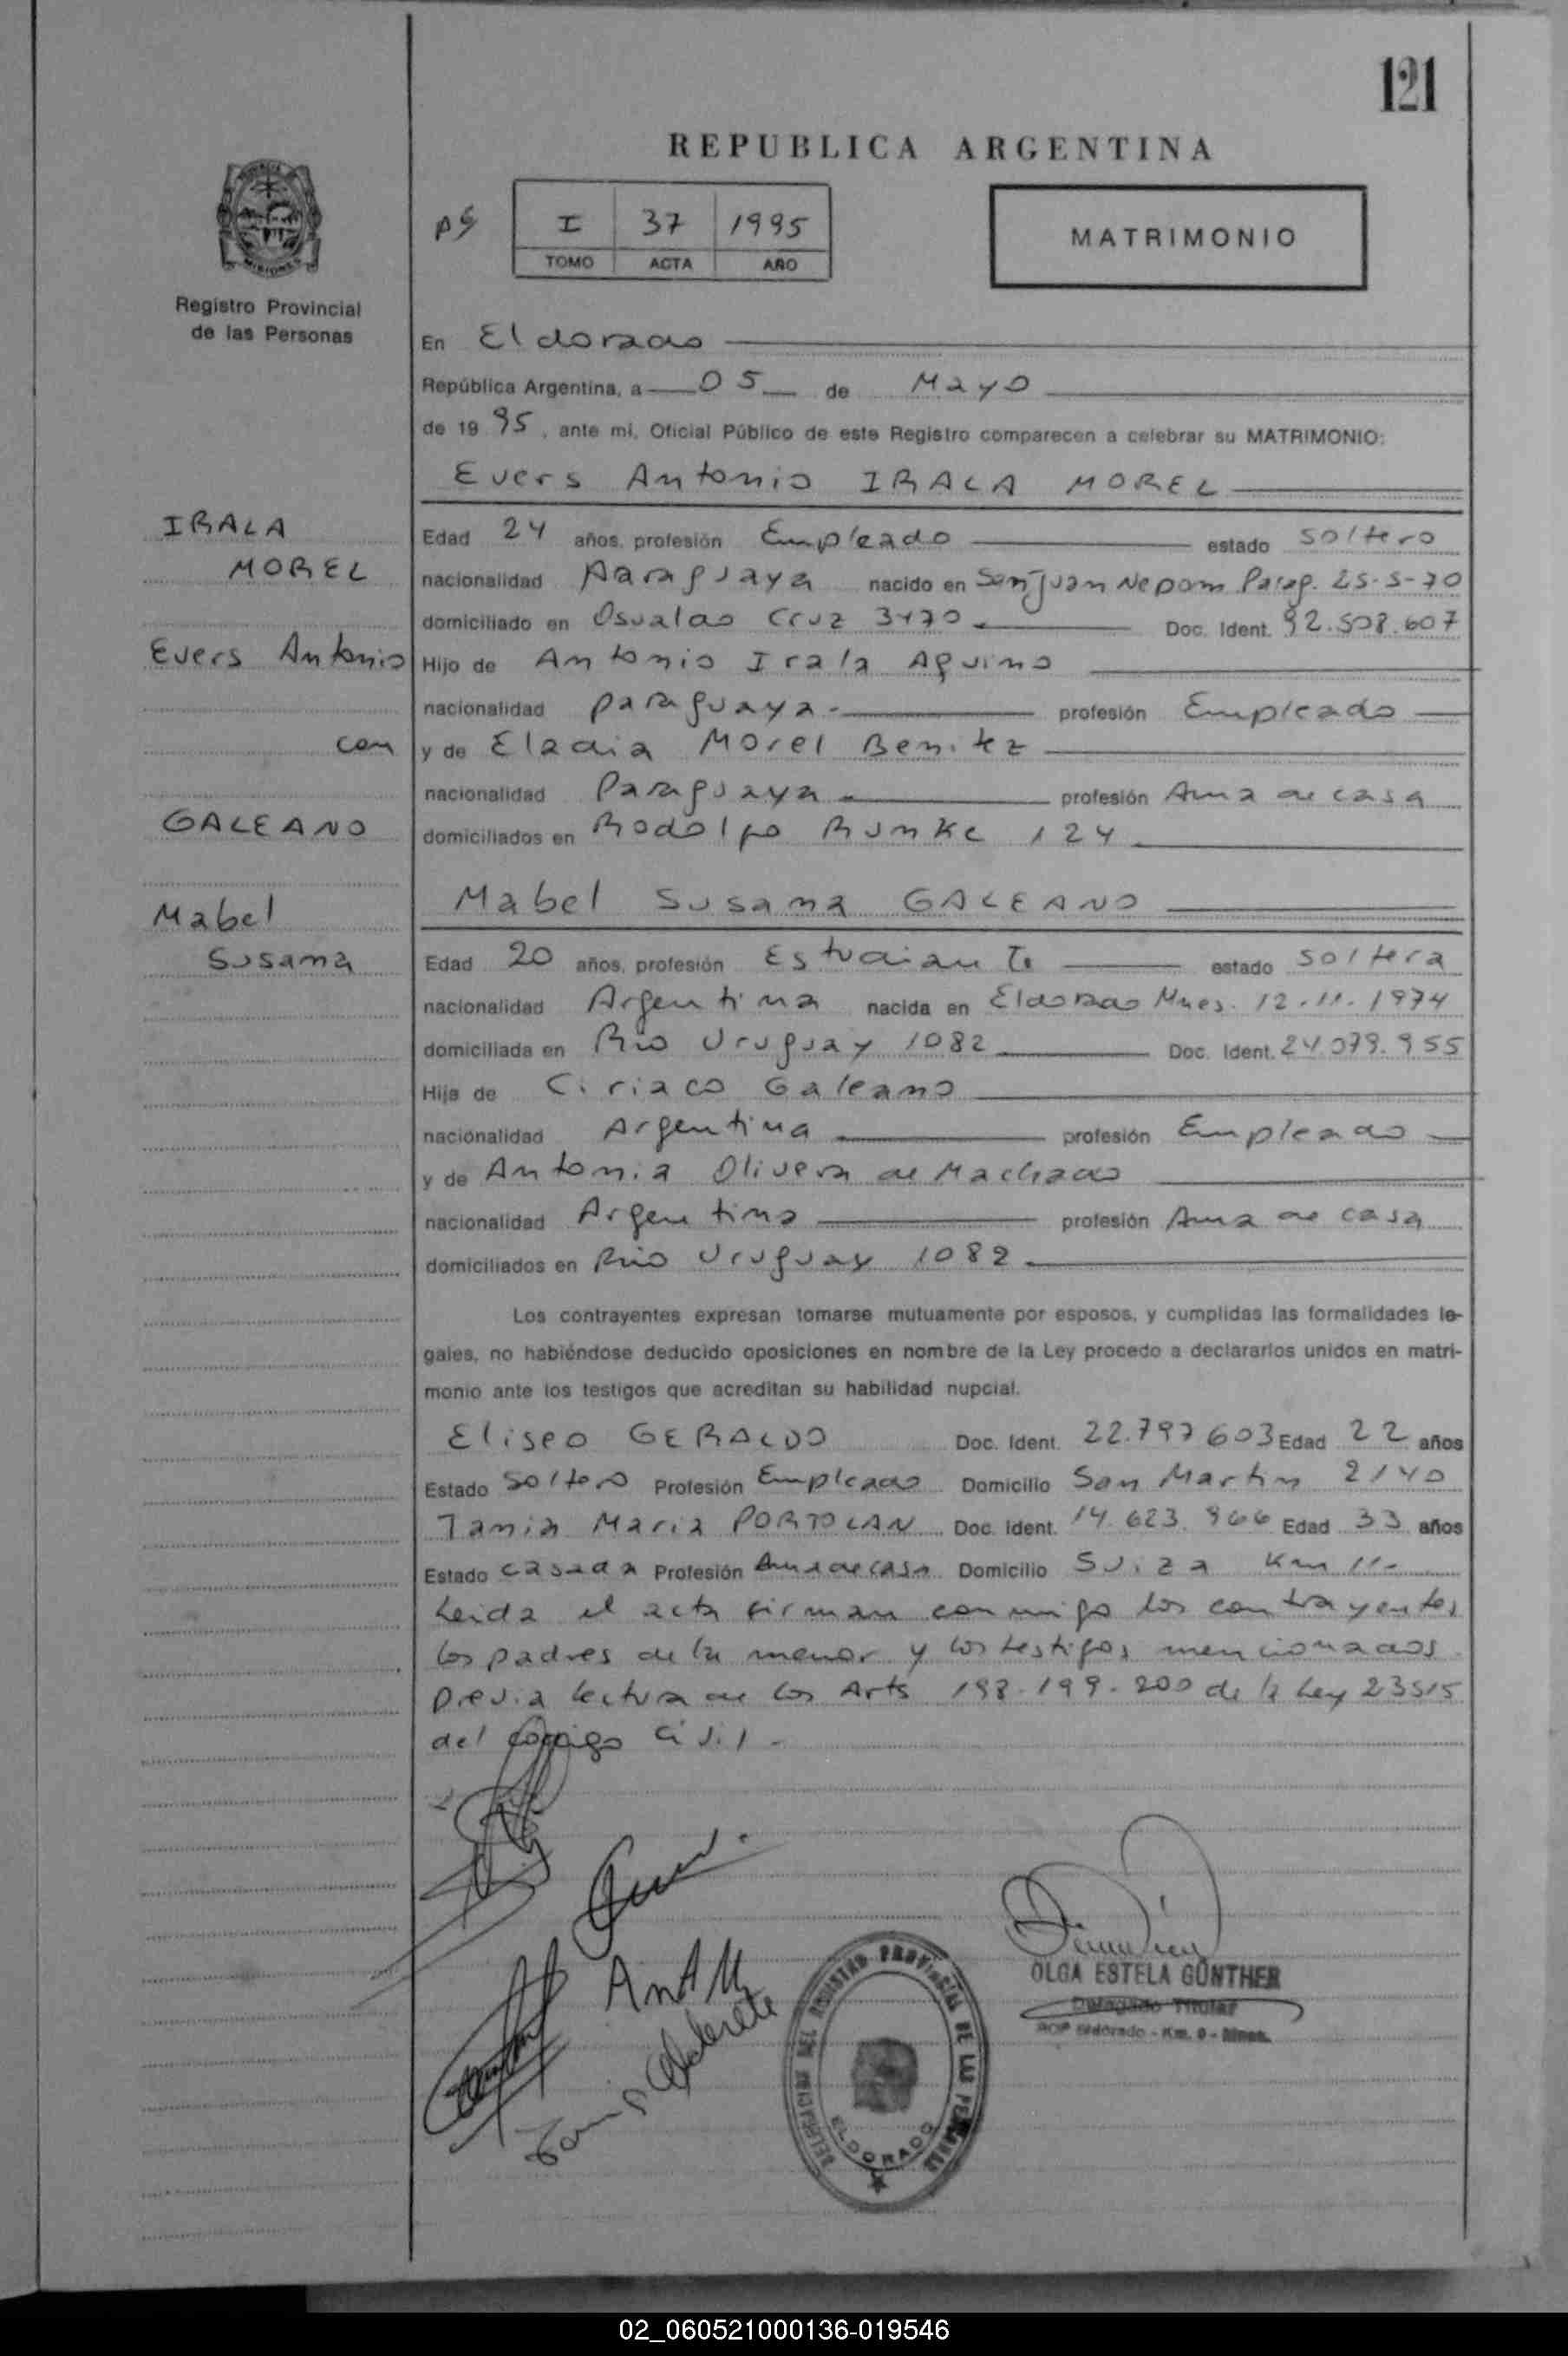 121
REPUBLICA ARGENTINA
I 37 1995
TOMO ACTA AÑO
MATRIMONIO
MISIONES
Registro Provincial
de las Personas
IRALA
MOREL
Evers Antonio
con
GALEANO
Mabel
Susana
En Eldorado
República Argentina, a 05 de Mayo
de 1995, ante mí, Oficial Público de este Registro comparecen a celebrar su MATRIMONIO:
Evers Antonio IRALA MOREL
Edad 24 años, profesión Empleado estado soltero
nacionalidad Paraguaya nacido en San Juan Nepom Parag. 25-5-70
domiciliado en Osvaldo Cruz 3470.- Doc. Ident. 92.508.607
Hijo de Antonio Irala Aquino
nacionalidad paraguaya.- profesión Empleado
y de Eladia Morel Benitez
nacionalidad Paraguaya.- profesión Ama de casa
domiciliados en Rodolfo Rumke 124.
Mabel Susana GALEANO
Edad 20 años, profesión Estudiante estado soltera
nacionalidad Argentina nacida en Eldorado Mnes. 12.11.1974
domiciliada en Rio Uruguay 1082 Doc. Ident. 24.079.955
Hija de Ciriaco Galeano
nacionalidad Argentina profesión Empleado
y de Antonia Olivera de Machado
nacionalidad Argentina profesión Ama de casa
domiciliados en Rio Uruguay 1082.
Los contrayentes expresan tomarse mutuamente por esposos, y cumplidas las formalidades le-
gales, no habiéndose deducido oposiciones en nombre de la Ley procedo a declararlos unidos en matri-
monio ante los testigos que acreditan su habilidad nupcial.
Eliseo GERALDO Doc. Ident. 22.797603 Edad 22 años
Estado Soltero Profesión Empleado Domicilio San Martin 2140
Tania Maria PORTOLAN Doc. Ident. 14.623.966 Edad 33 años
Estado casada Profesión Ama de casa Domicilio Suiza Km 11-
Leida el acta firman conmigo los contrayentes,
los padres de la menor y los testigos mencionados
previa lectura de los Arts 198-199-200 de la Ley 23515
del codigo civil.-
OLGA ESTELA GÜNTHER
Delegado Titular
RCP Eldorado - Km. 9 - Mnes.
DELEGACION DEL REGISTRO PROVINCIAL DE LAS PERSONAS
ELDORADO
02_060521000136-019546